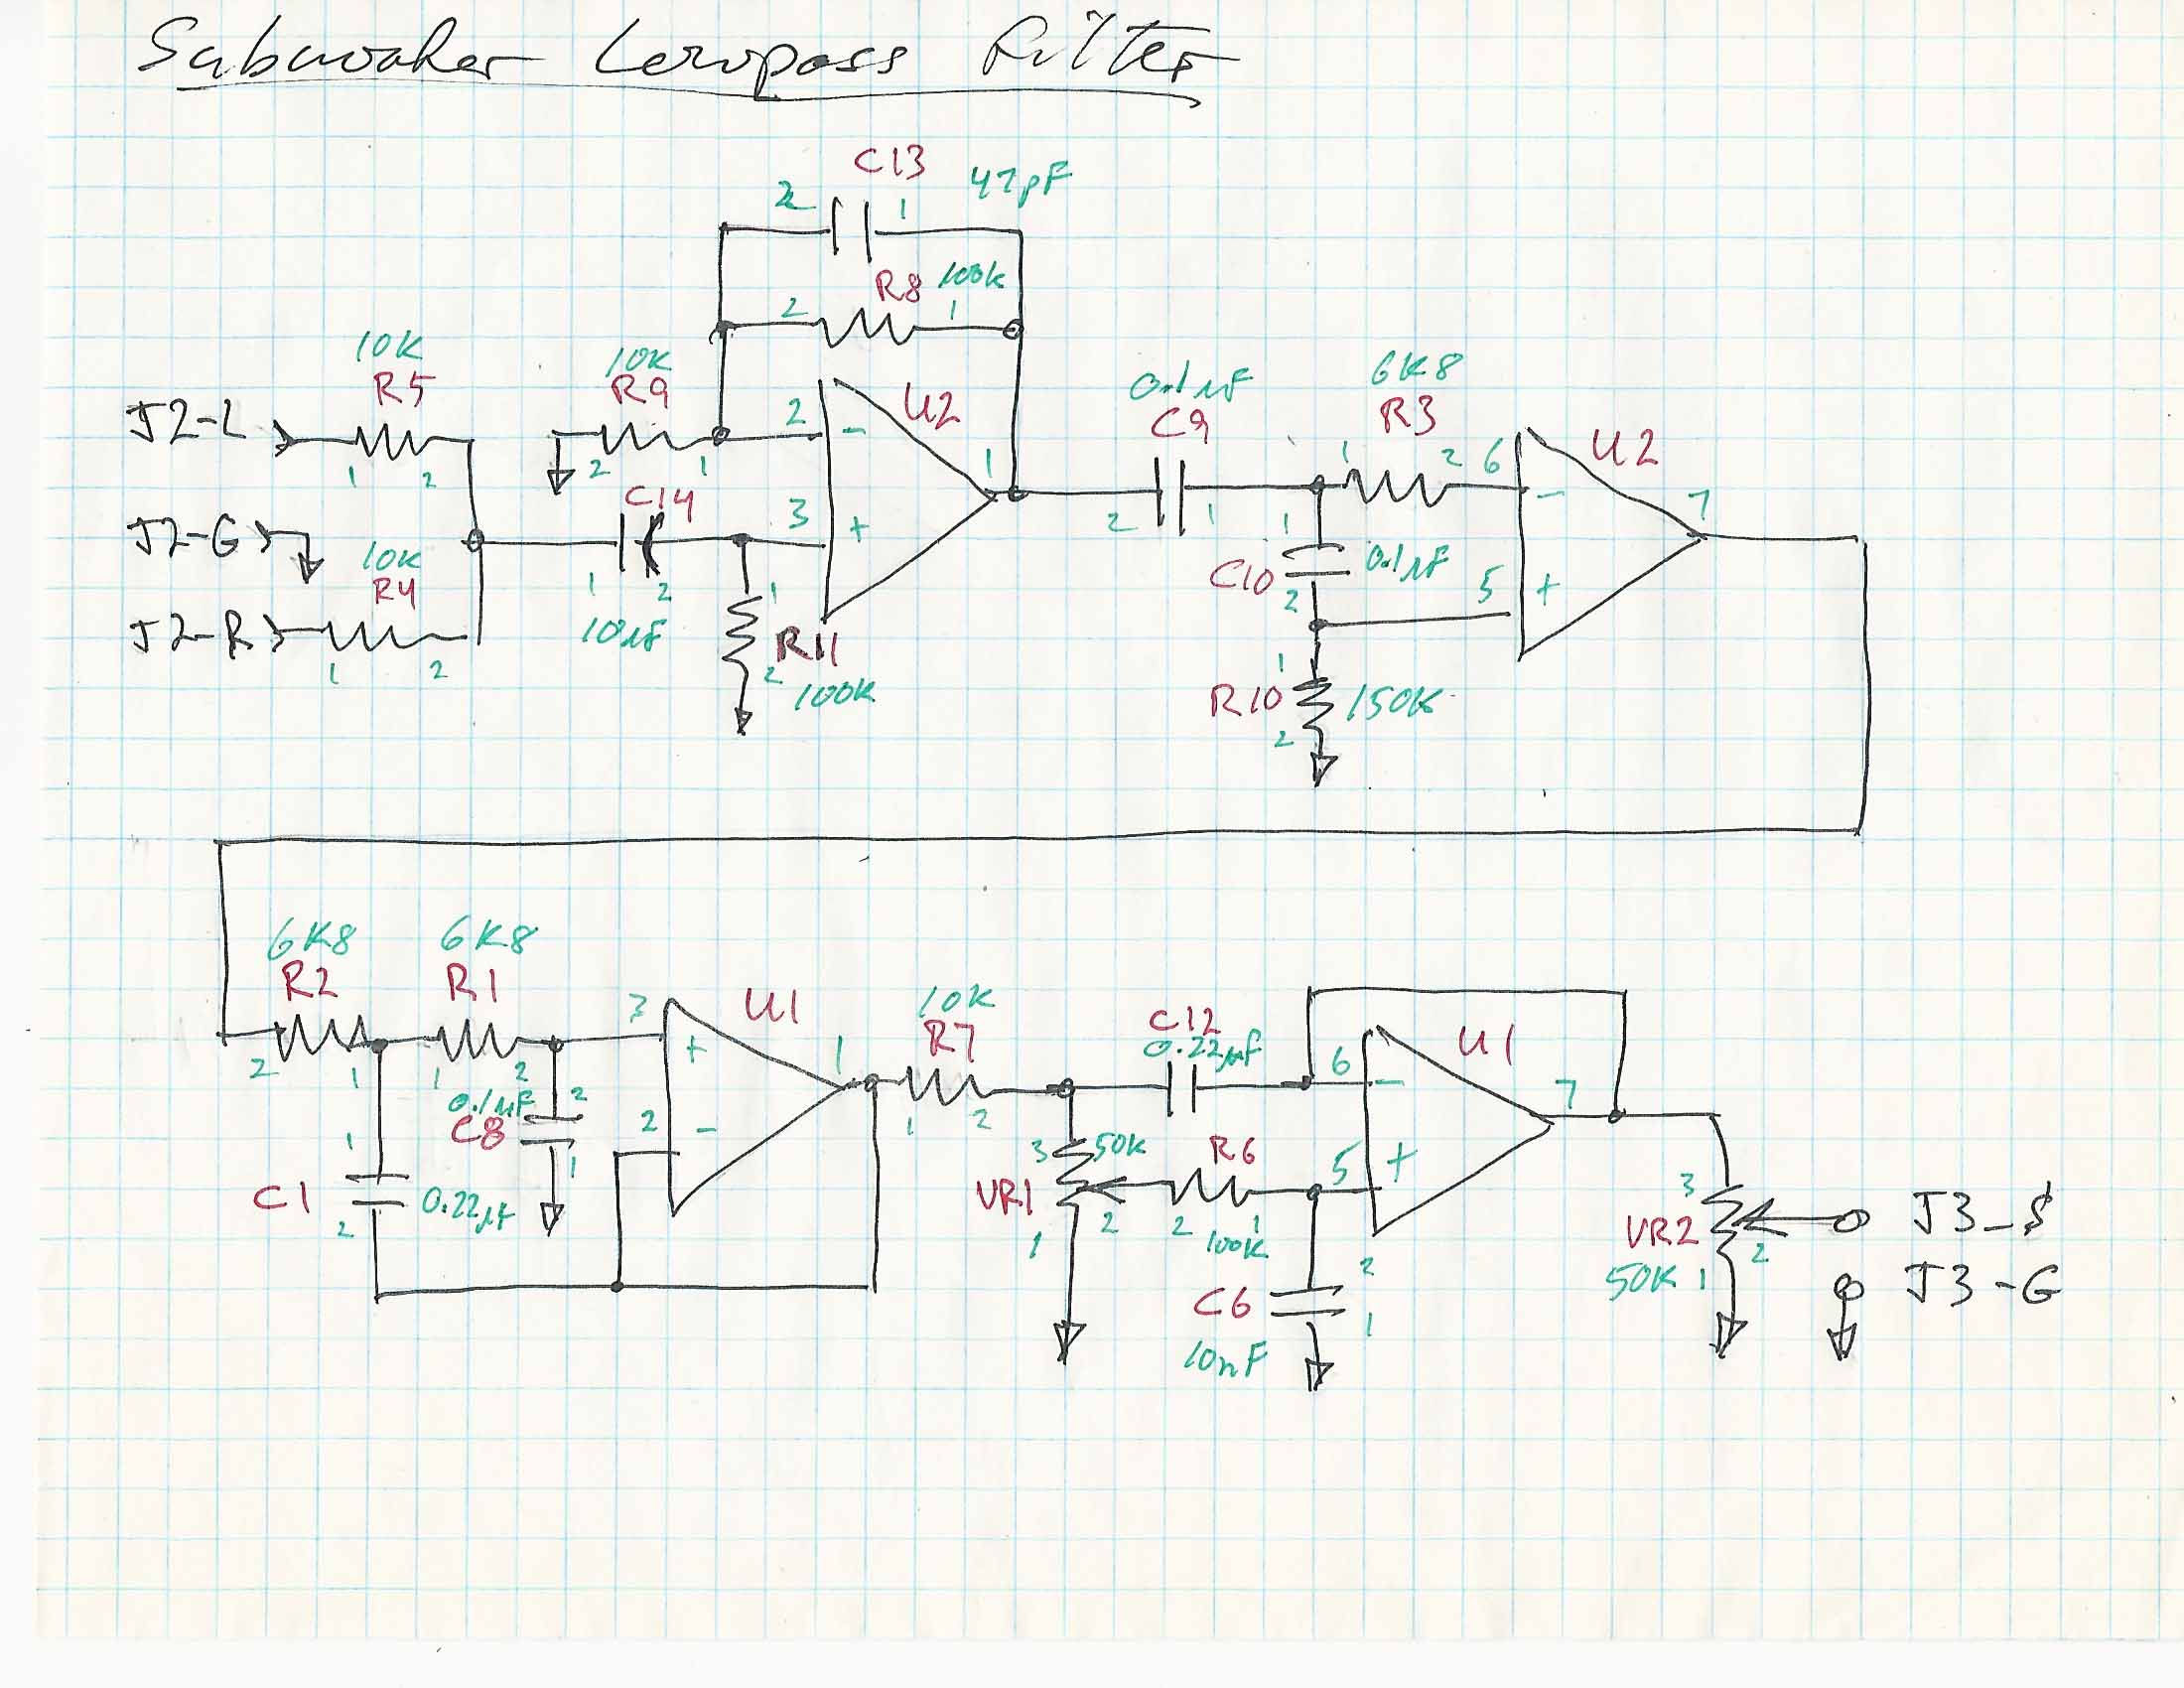 Subwoofer Lowpass Filter
C13
2 1 47pF
R8 100k
2 1
10K
R5
10K
R9
U2
0.1µF
C9
6K8
R3
J2-L
1 2
2 1
2 -
1
2 1
1 2
6 -
U2
7
C14
J2-G
10K
R4
1 2
10µF
3 +
1
R11
2
100K
1
C10 0.1µF
2
5 +
J2-R
1 2
1
R10 150K
2
6K8
R2
6K8
R1
2 1
1 2
3 +
U1
1
10K
R7
1 2
C12
0.22µF
6 -
U1
7
0.1µF 2
C8
1
2 -
1
C1 0.22µF
2
3 50K
VR1
2
1
R6
2 1
100K
5 +
2
C6
1
10nF
3
VR2
2
50K 1
J3-S
J3-G